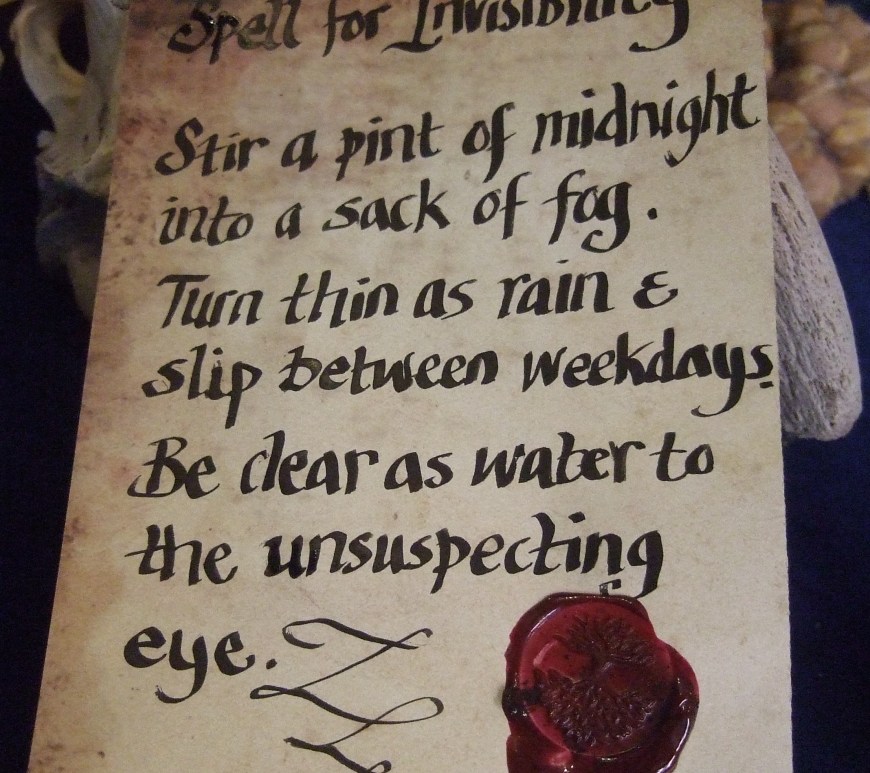 Spell for Invisibility
Stir a pint of midnight
into a sack of fog.
Turn thin as rain &
slip between weekdays.
Be clear as water to
the unsuspecting
eye.